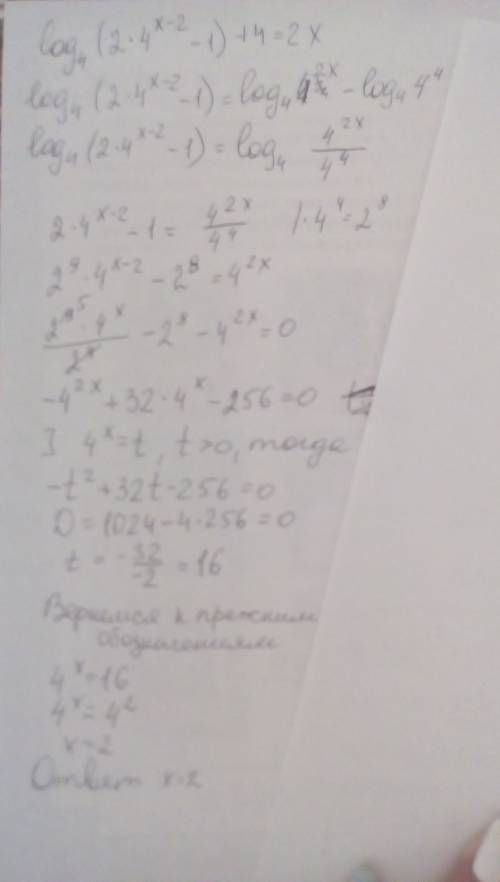 log₄(2·4^(x-2) - 1) + 4 = 2x
log₄(2·4^(x-2) - 1) = log₄ 4^(2x) - log₄ 4⁴
log₄(2·4^(x-2) - 1) = log₄ 4^(2x)/4⁴
2·4^(x-2) - 1 = 4^(2x)/4⁴ | · 4⁴ = 2⁸
2⁹·4^(x-2) - 2⁸ = 4^(2x)
2⁹ ⁵·4^x/2⁴ - 2⁸ - 4^(2x) = 0
-4^(2x) + 32·4^x - 256 = 0
] 4^x = t, t > 0, тогда
-t² + 32t - 256 = 0
D = 1024 - 4·256 = 0
t = -32/-2 = 16
Вернемся к прежним
обозначениям
4^x = 16
4^x = 4²
x = 2
Ответ x = 2